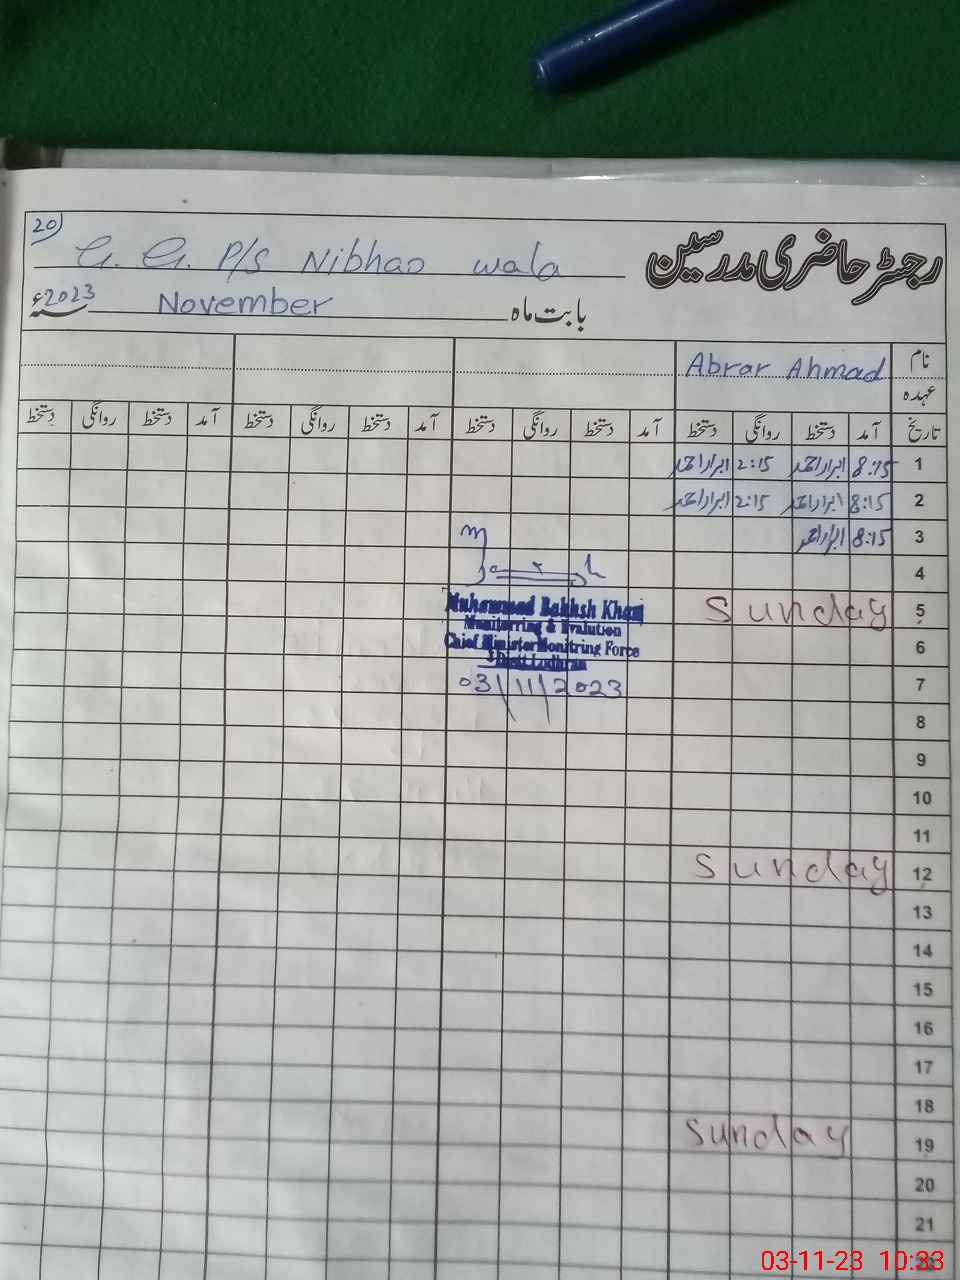 20)
G. G. P/S Nibhao wala
رجسٹر حاضری مدرسین
بابت ماہ November سنہ 2023ء
نام Abrar Ahmad
عہدہ
تاریخ آمد دستخط روانگی دستخط آمد دستخط روانگی دستخط آمد دستخط روانگی دستخط آمد دستخط روانگی دستخط
1 8:15 ابراراحمد 2:15 ابراراحمد
2 8:15 ابراراحمد 2:15 ابراراحمد
3 8:15 ابراراحمد
4
5 Sunday
Muhammad Bakhsh Khan
Monitorring & Evalution
6
Chief Minister Monitring Force
Lodhran
7
03/11/2023
8
9
10
11
12 Sunday
13
14
15
16
17
18
19 Sunday
20
21
03-11-23 10:33